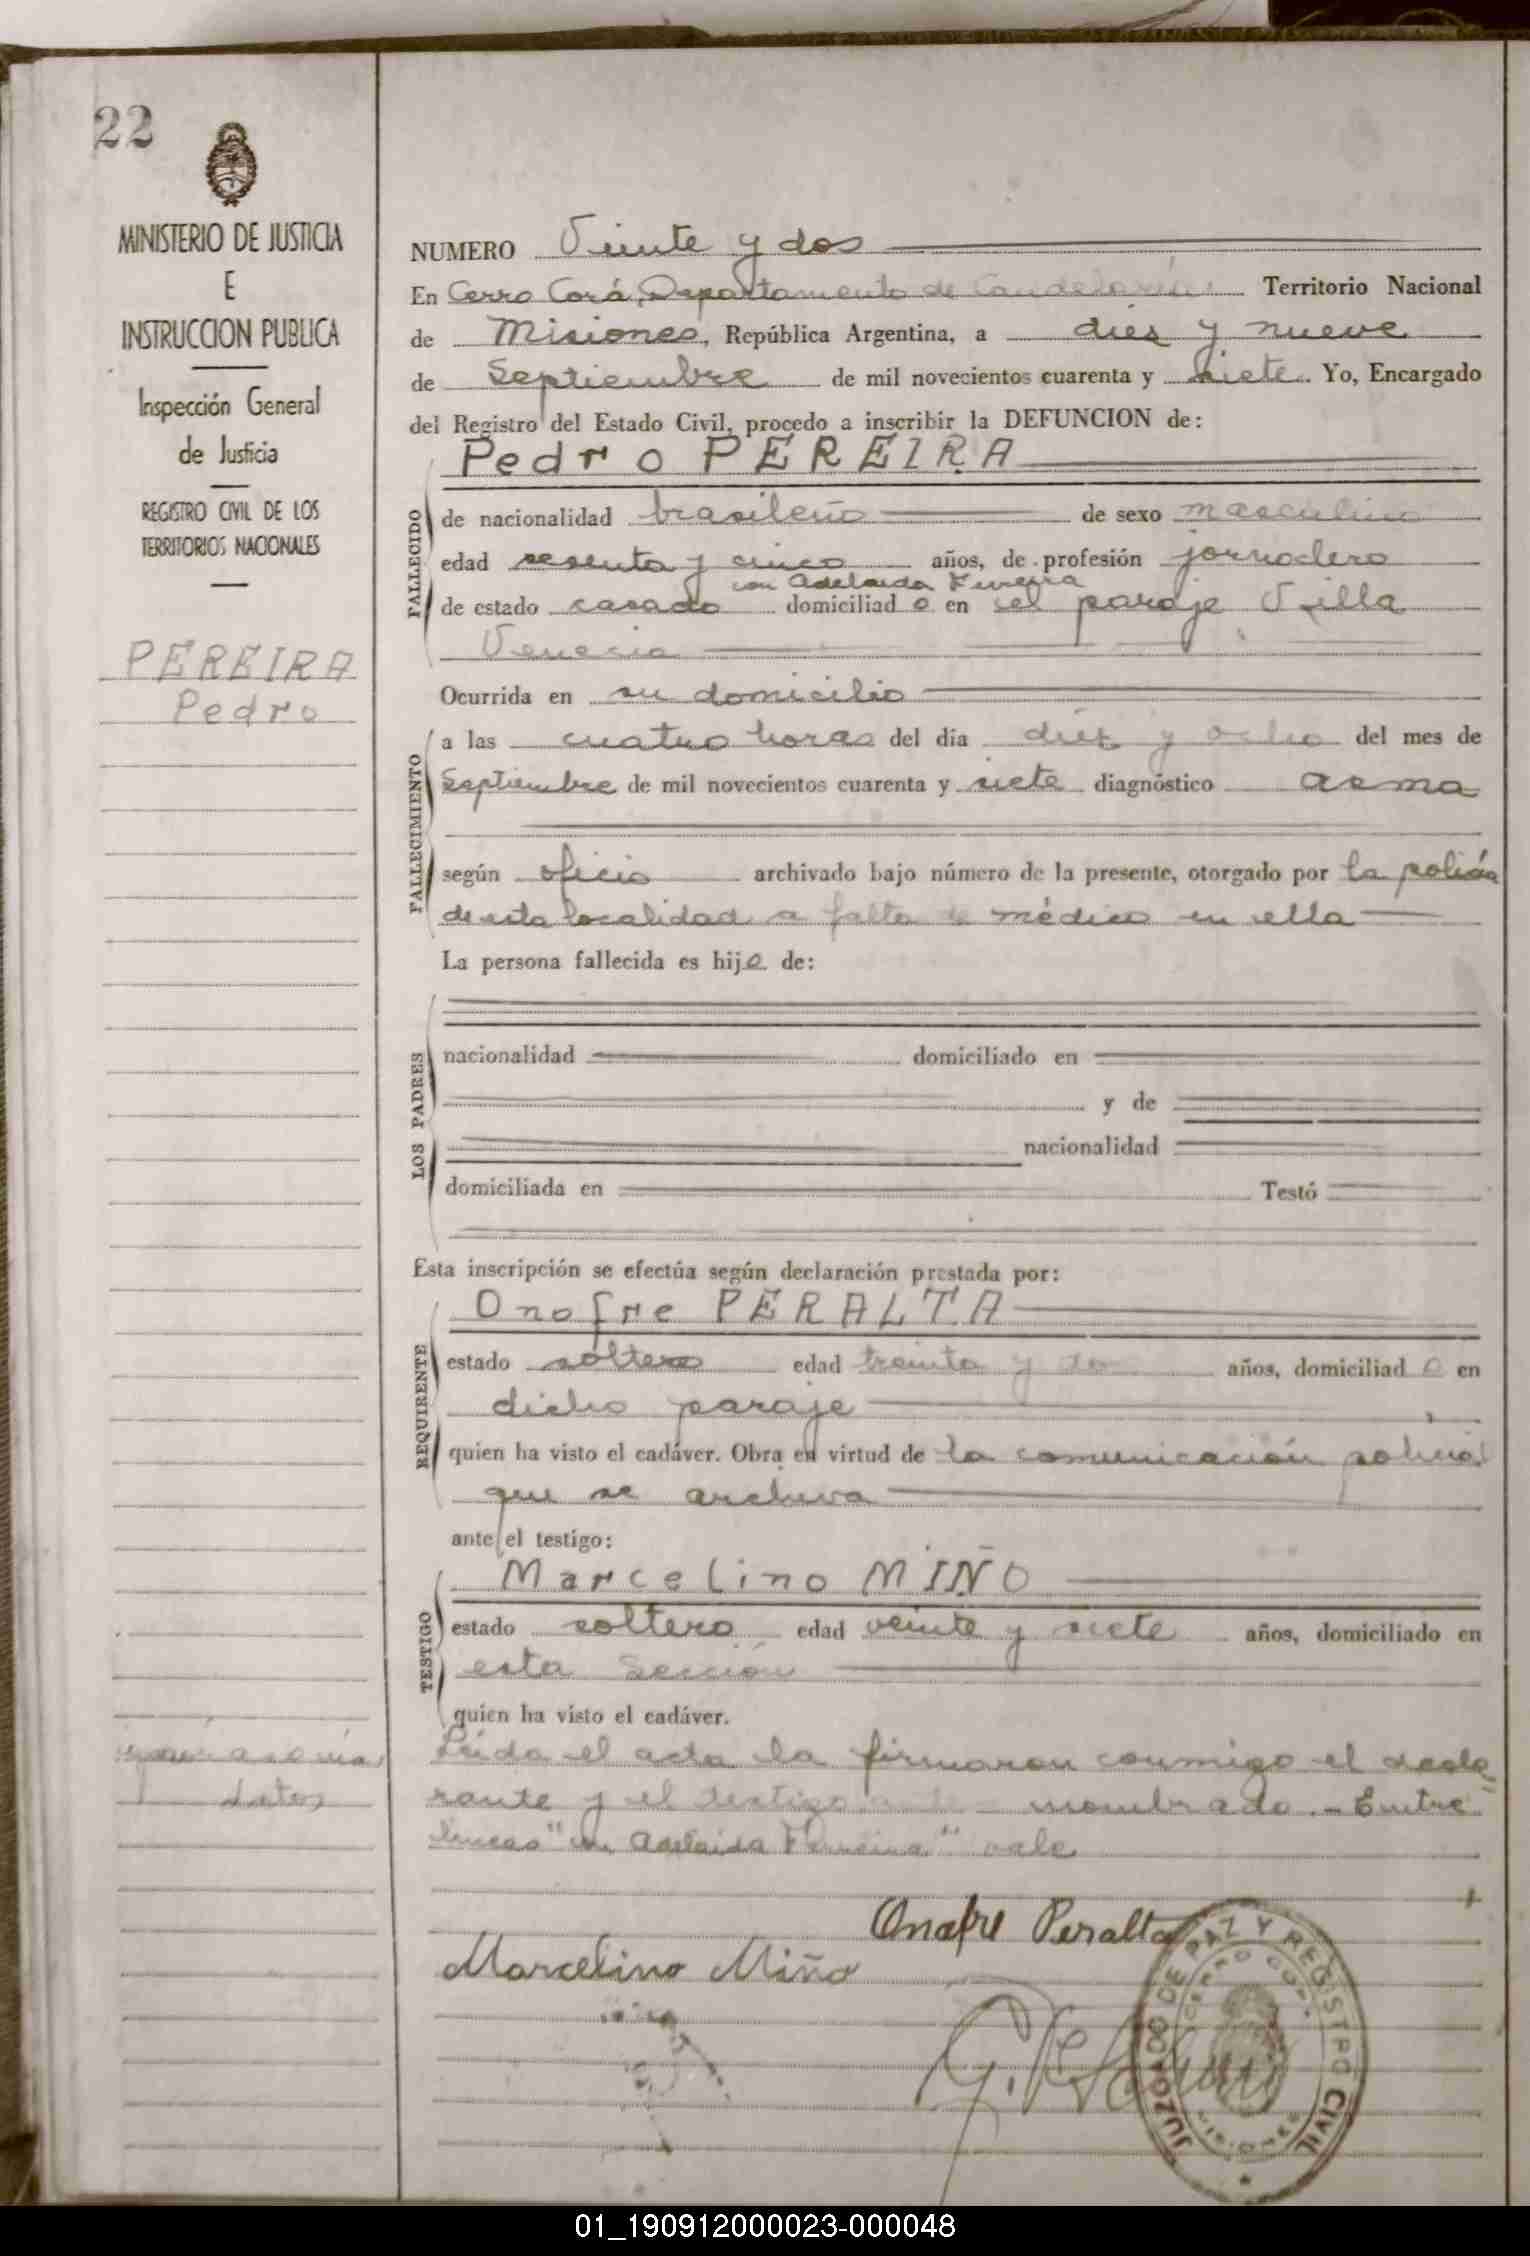 22
MINISTERIO DE JUSTICIA
E
INSTRUCCION PUBLICA
Inspección General
de Justicia
REGISTRO CIVIL DE LOS
TERRITORIOS NACIONALES
PEREIRA
Pedro
datos
NUMERO Veinte y dos
En Cerro Corá, Departamento de Candelaria Territorio Nacional
de Misiones, República Argentina, a diez y nueve
de Septiembre de mil novecientos cuarenta y siete. Yo, Encargado
del Registro del Estado Civil, procedo a inscribir la DEFUNCION de:
Pedro PEREIRA
FALLECIDO
de nacionalidad brasileño de sexo masculino
edad sesenta y cinco años, de profesión jornalero
con Adelaida Ferreira
de estado casado domiciliado en el paraje Villa
Venecia
Ocurrida en su domicilio
FALLECIMIENTO
a las cuatro horas del día diez y ocho del mes de
Septiembre de mil novecientos cuarenta y siete diagnóstico asma
según oficio archivado bajo número de la presente, otorgado por la policía
de esta localidad a falta de médico en ella
La persona fallecida es hijo de:
LOS PADRES
nacionalidad domiciliado en
y de
nacionalidad
domiciliada en Testó
Esta inscripción se efectúa según declaración prestada por:
Onofre PERALTA
REQUIRENTE
estado soltero edad treinta y do años, domiciliado en
dicho paraje
quien ha visto el cadáver. Obra en virtud de la comunicación policial
que se archiva
ante el testigo:
Marcelino MIÑO
TESTIGO
estado soltero edad veinte y siete años, domiciliado en
esta Sección
quien ha visto el cadáver.
Leída el acta la firmaron conmigo el decla
rante y el testigo nombrado.- Entre
lineas "con Adelaida Ferreira" vale
Onofre Peralta
Marcelino Miño
JUZGADO DE PAZ Y REGISTRO CIVIL
CERRO CORÁ
MISIONES
01_190912000023-000048